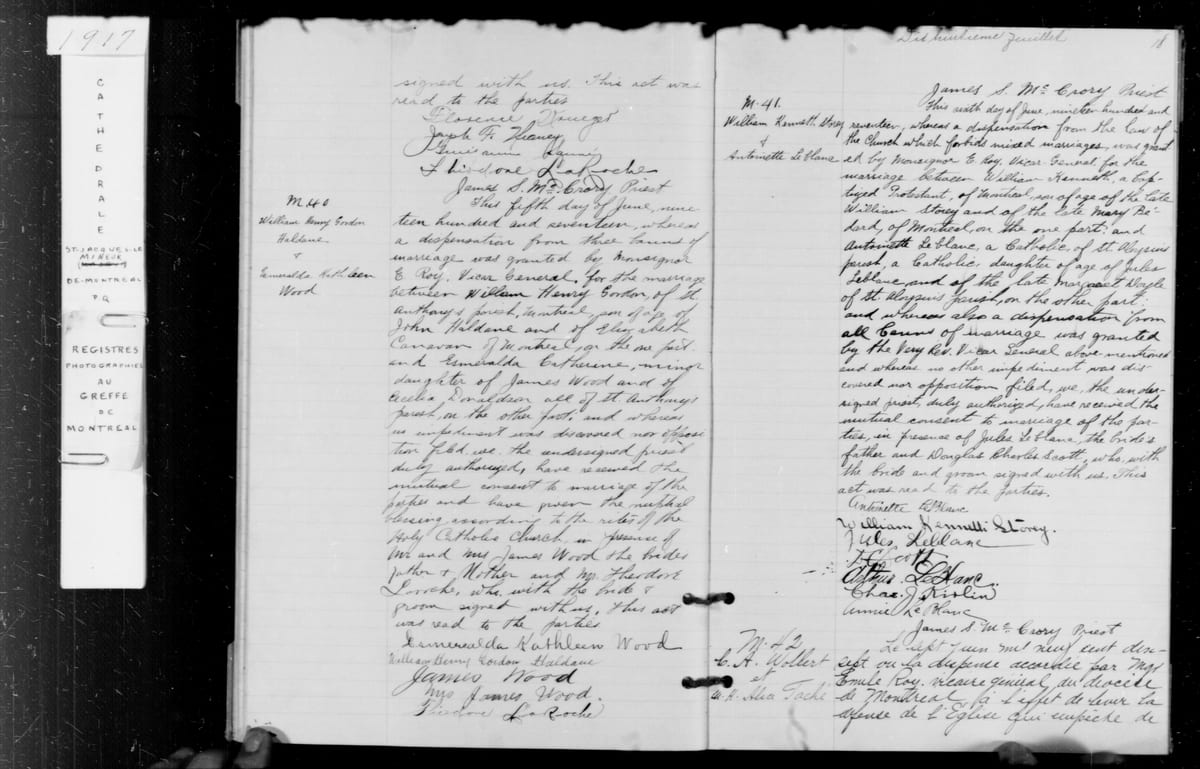 1917
CATHEDRALE
ST-JACQUES-LE
MINEUR
DE-MONTREAL
P.Q
REGISTRES
PHOTOGRAPHIES
AU
GREFFE
DE
MONTREAL
signed with us. This act was
read to the parties
Florence
Joseph F.
Theodore LaRoche
James S. McCrory Priest
M 40
William Henry Gordon
Haldane
&
Esmeralda Kathleen
Wood
This fifth day of June, nine-
teen hundred and seventeen, whereas
a dispensation from three banns of
marriage was granted by Monsignor
E Roy, Vicar General, for the marriage
between William Henry Gordon, of St
Anthony's parish, Montreal, son of age of
John Haldane and of Elizabeth
Canavan of Montreal, on the one part.
and Esmeralda Catherine, minor
daughter of James Wood and of
Cecilia Donaldson all of St Anthony's
parish, on the other part, and whereas
no impediment was discovered nor opposi
tion filed we, the undersigned priest
duly authorized, have received the
mutual consent to marriage of the
parties and have given the nuptial
blessing according to the rites of the
Holy Catholic Church, in presence of
Mr and Mrs James Wood the brides
father & Mother and Mr. Theodore
Laroche, who, with the bride &
groom signed with us. This act
was read to the parties
Esmeralda Kathleen Wood
William Henry Gordon Haldane
James Wood
Mrs James Wood.
Theodore LaRoche
Dixhuitieme feuillet
18
James S. McCrory Priest
M. 41.
William Kenneth Storey
&
Antoinette LeBlanc
This sixth day of June, nineteen hundred and
seventeen, whereas a dispensation from the law of
the Church which forbids mixed marriages, was grant
ed by Monsignor E. Roy, Vicar General for the
marriage between William Kenneth, a bap-
tized Protestant, of Montreal, son of age of the late
William Storey and of the late Mary Be-
dard, of Montreal, on the one part: and
Antoinette LeBlanc, a Catholic, of St. Aloysius
parish, a Catholic, daughter of age of Jules
Leblanc, and of the late Margaret Doyle
of St. Aloysius parish, on the other part:
and whereas also a dispensation from
all banns of marriage was granted
by the Very Rev. Vicar General above mentioned
and whereas no other impediment was dis-
covered nor opposition filed, we, the under-
signed priest, duly authorized, have received the
mutual consent to marriage of the par-
ties, in presence of Jules LeBlanc, the bride's
father and Douglas Charles Scott, who, with
the bride and groom signed with us. This
act was read to the parties.
Antoinette LeBlanc
William Kenneth Storey.
Jules Leblanc
Scott
Arthur LeBlanc.
Chas. J. Kirslin
Annie Le Blanc
James S. McCrory Priest
M. 42
C. A. Wolbert
et
Alice Taché
Le sept juin mil neuf cent dix-
sept vu la dispense accordée par Mgr
Emile Roy, vicaire général du diocèse
de Montréal à l'effet de lever la
défense de l'Eglise qui empêche de